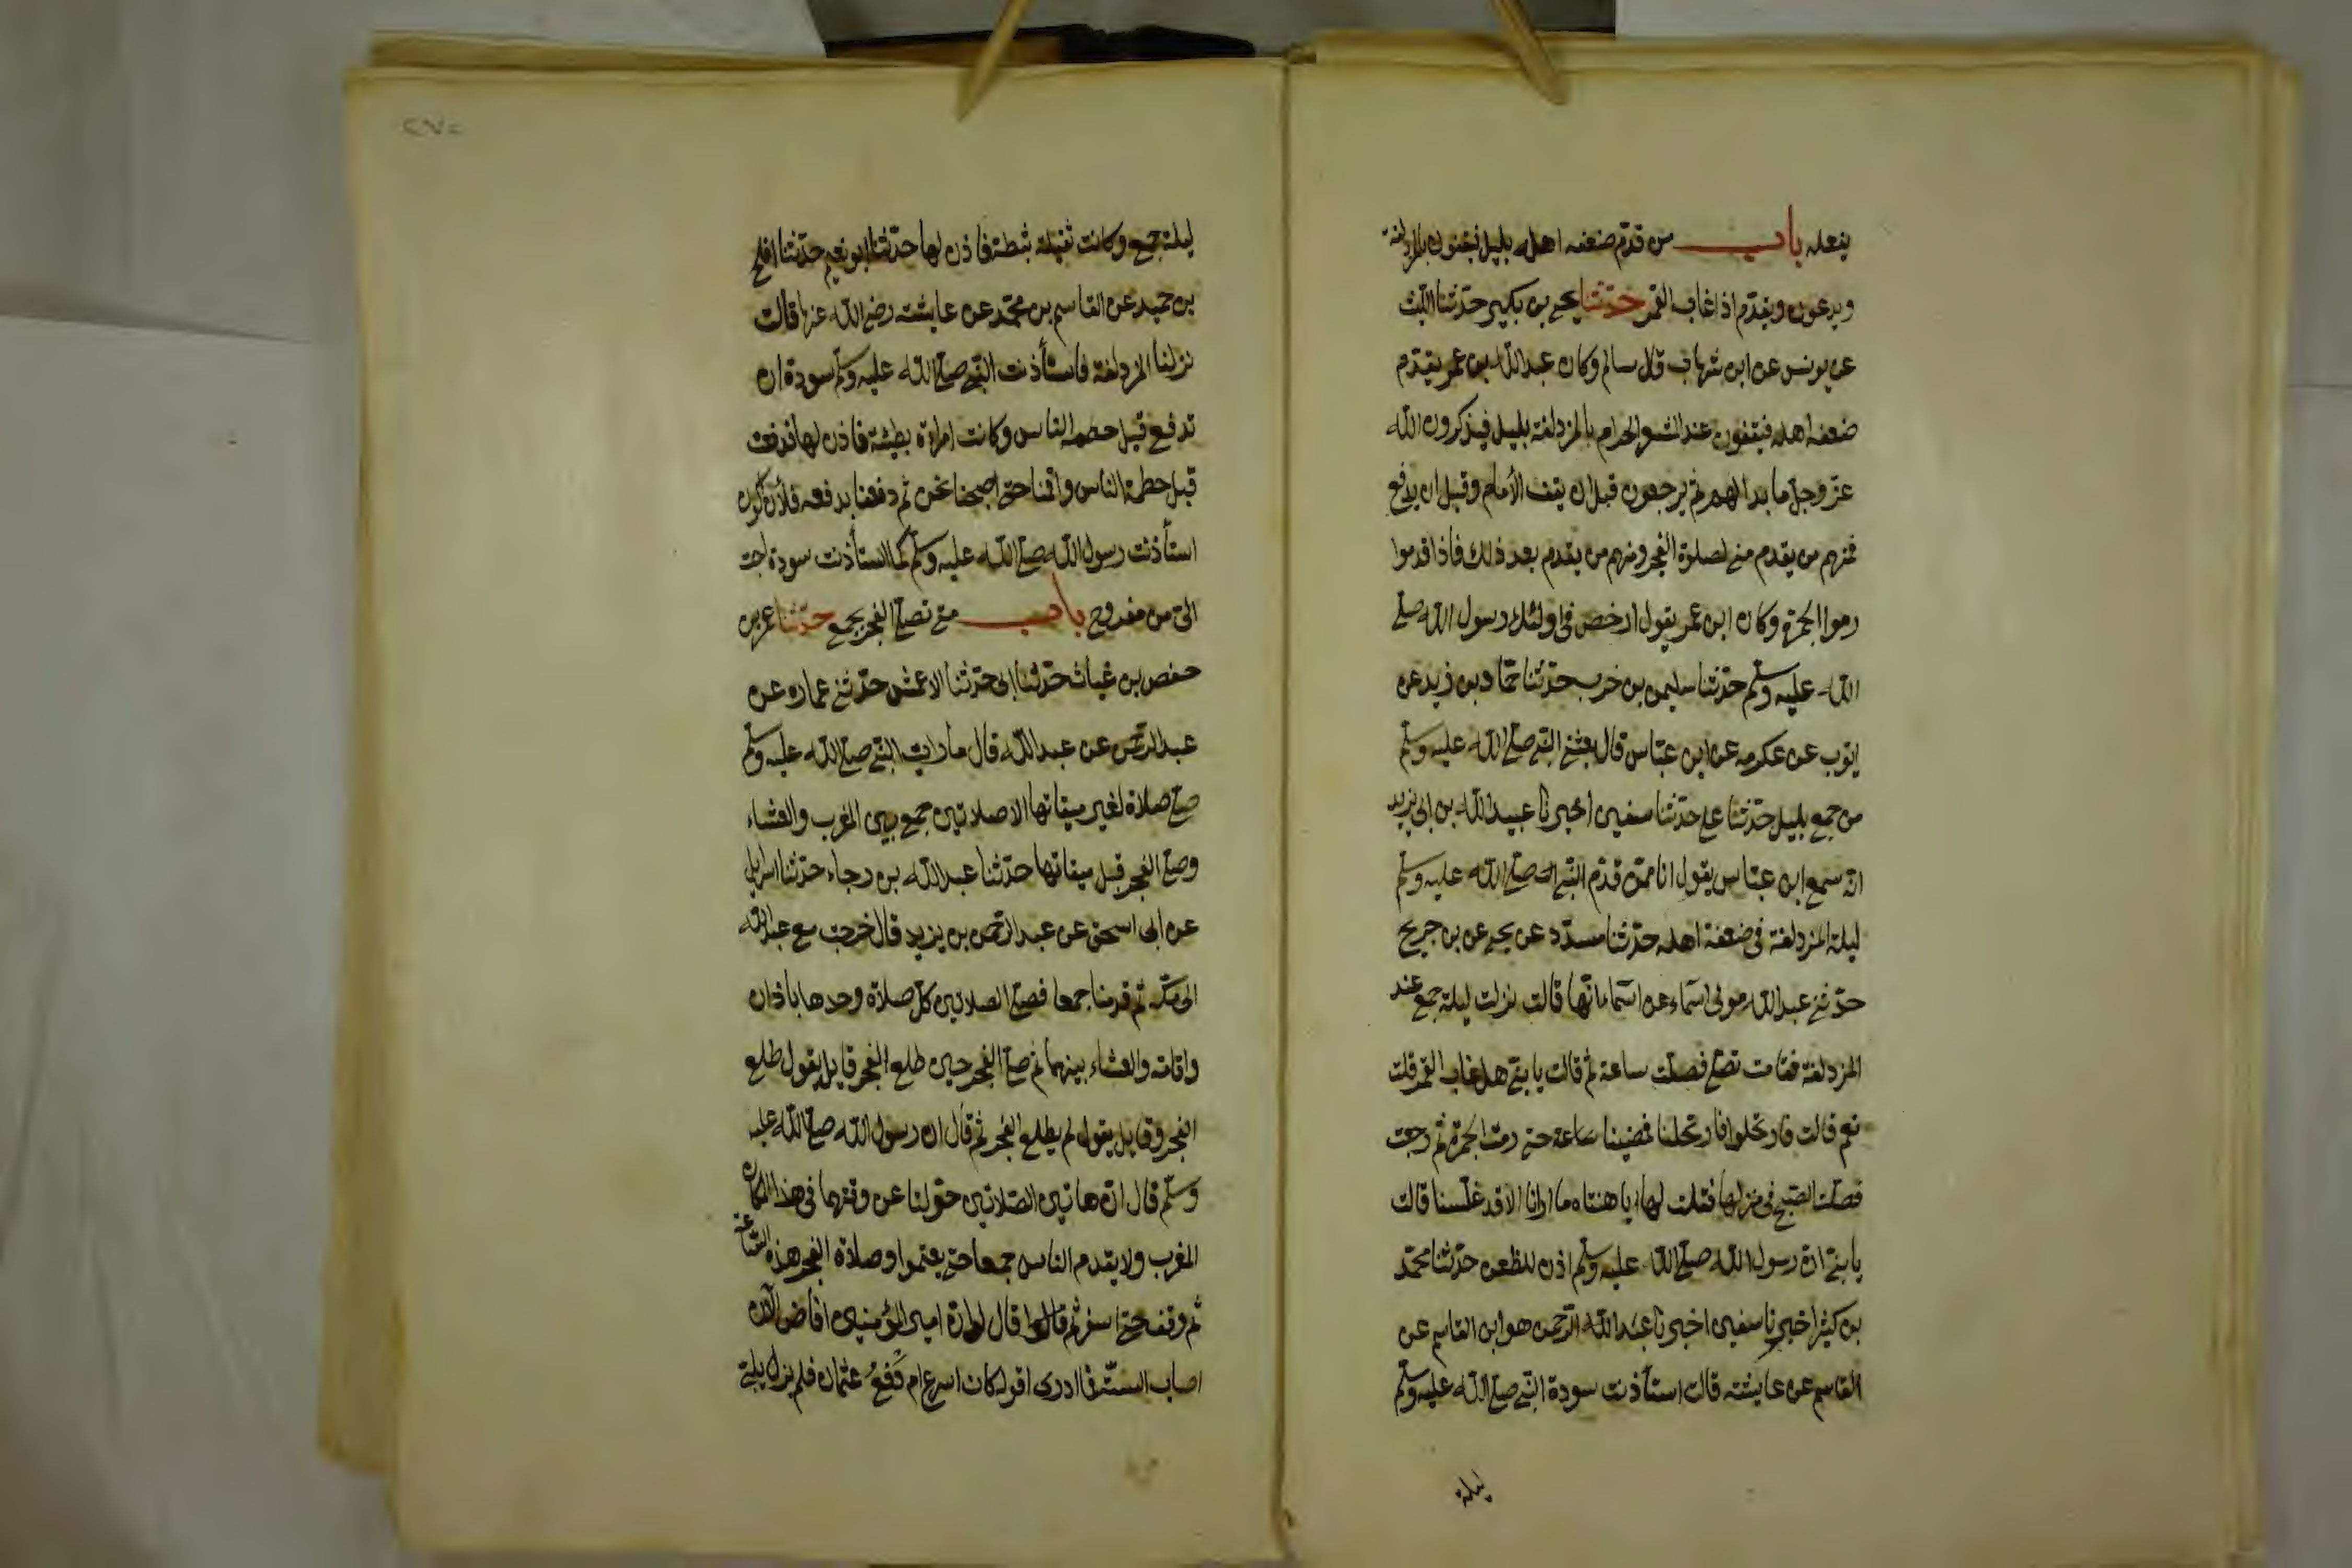 يفعله باب من قدم ضعفه اهله بليل فيقفون بالمزدلفة
ويدعون ويقدم اذا غاب القمر حدثنا يحيى بن بكير حدثنا الليث
عن يونس عن ابن شهاب قال سالم وكان عبد الله بن عمر يقدم
ضعفه اهله فيقفون عند المشعر الحرام بالمزدلفة بليل فيذكرون الله
عز وجل ما بدا لهم ثم يرجعون قبل ان يقف الأمام وقبل ان يدفع
فمنهم من يقدم منى لصلوة الفجر ومنهم من يقدم بعد ذلك فاذا قدموا
رموا الجمرة وكان ابن عمر يقول ارخص في اولئك رسول الله صلى
الله عليه وسلم حدثنا سليمن بن حرب حدثنا حماد بن زيد عن
ايوب عن عكرمه عن ابن عباس قال بعثنى النبي صلى الله عليه وسلم
من جمع بليل حدثنا على حدثنا سفين اخبرنا عبيد الله بن ابى يزيد
انه سمع ابن عباس يقول انا ممن قدم النبي صلى الله عليه وسلم
ليلة المزدلفة في ضعفة اهله حدثنا مسدد عن يحيى عن بن جريج
حدثنى عبد الله مولى اسماء عن اسماء انها قالت نزلت ليلة جمع عند
المزدلفة فقامت تصلى فصلت ساعة ثم قالت يا بنى هل غاب القمر قلت
نعم قالت فارتحلوا فارتحلنا فمضينا ساعة حتى رمت الجمرة ثم رجعت
فصلت الصبح في منزلها فقلت لها يا هنتاه ما ارانا الا قد غلسنا قالت
يا بنى ان رسول الله صلى الله عليه وسلم اذن للظعن حدثنا محمد
بن كثير اخبرنا سفين اخبرنا عبد الرحمن هو ابن القاسم عن
القاسم عن عايشة قالت استأذنت سودة النبي صلى الله عليه وسلم
ليلة
ليلة جمع وكانت ثقيلة ثبطة فاذن لها حدثنا ابو نعيم حدثنا افلح
بن حميد عن القاسم بن محمد عن عايشه رضى الله عنها قالت
نزلنا المزدلفة فاستأذنت النبي صلى الله عليه وسلم سودة ان
تدفع قبل حطمه الناس وكانت امراة بطيئة فاذن لها فدفعت
قبل حطمة الناس واقمنا حتى اصبحنا نحن ثم دفعنا بدفعه فلأن اكون
استأذنت رسول الله صلى الله عليه وسلم كما استأذنت سودة احب
الى من مفروح باب متى تصلى الفجر بجمع حدثنا عمر بن
حفص بن غياث حدثنا ابى حدثنا الاعمش حدثنى عماره عن
عبد الرحمن عن عبد الله قال ما رايت النبي صلى الله عليه وسلم
صلى صلاة لغير ميقاتها الا صلاتين جمع بين المغرب والعشاء
وصلى الفجر قبل ميقاتها حدثنا عبد الله بن رجاء حدثنا اسرايل
عن ابى اسحق عن عبد الرحمن بن يزيد قال خرجت مع عبد الله
الى مكة ثم قدمنا جمعا فصلى الصلاتين كل صلاة وحدها باذان
واقامه والعشاء بينهما ثم صلى الفجر حين طلع الفجر قايل يقول طلع
الفجر وقايل يقول لم يطلع الفجر ثم قال ان رسول الله صلى الله عليه
وسلم قال ان هاتين الصلاتين حولتا عن وقتهما في هذا المكان
المغرب ولا يقدم الناس جمعا حتى يعتموا وصلاة الفجر هذه الساعة
ثم وقف حتى اسفر ثم قال لو ان امير المؤمنين افاض الآن
اصاب السنة فما ادرى اقوله كان اسرع ام دفع عثمان فلم يزل يلبى